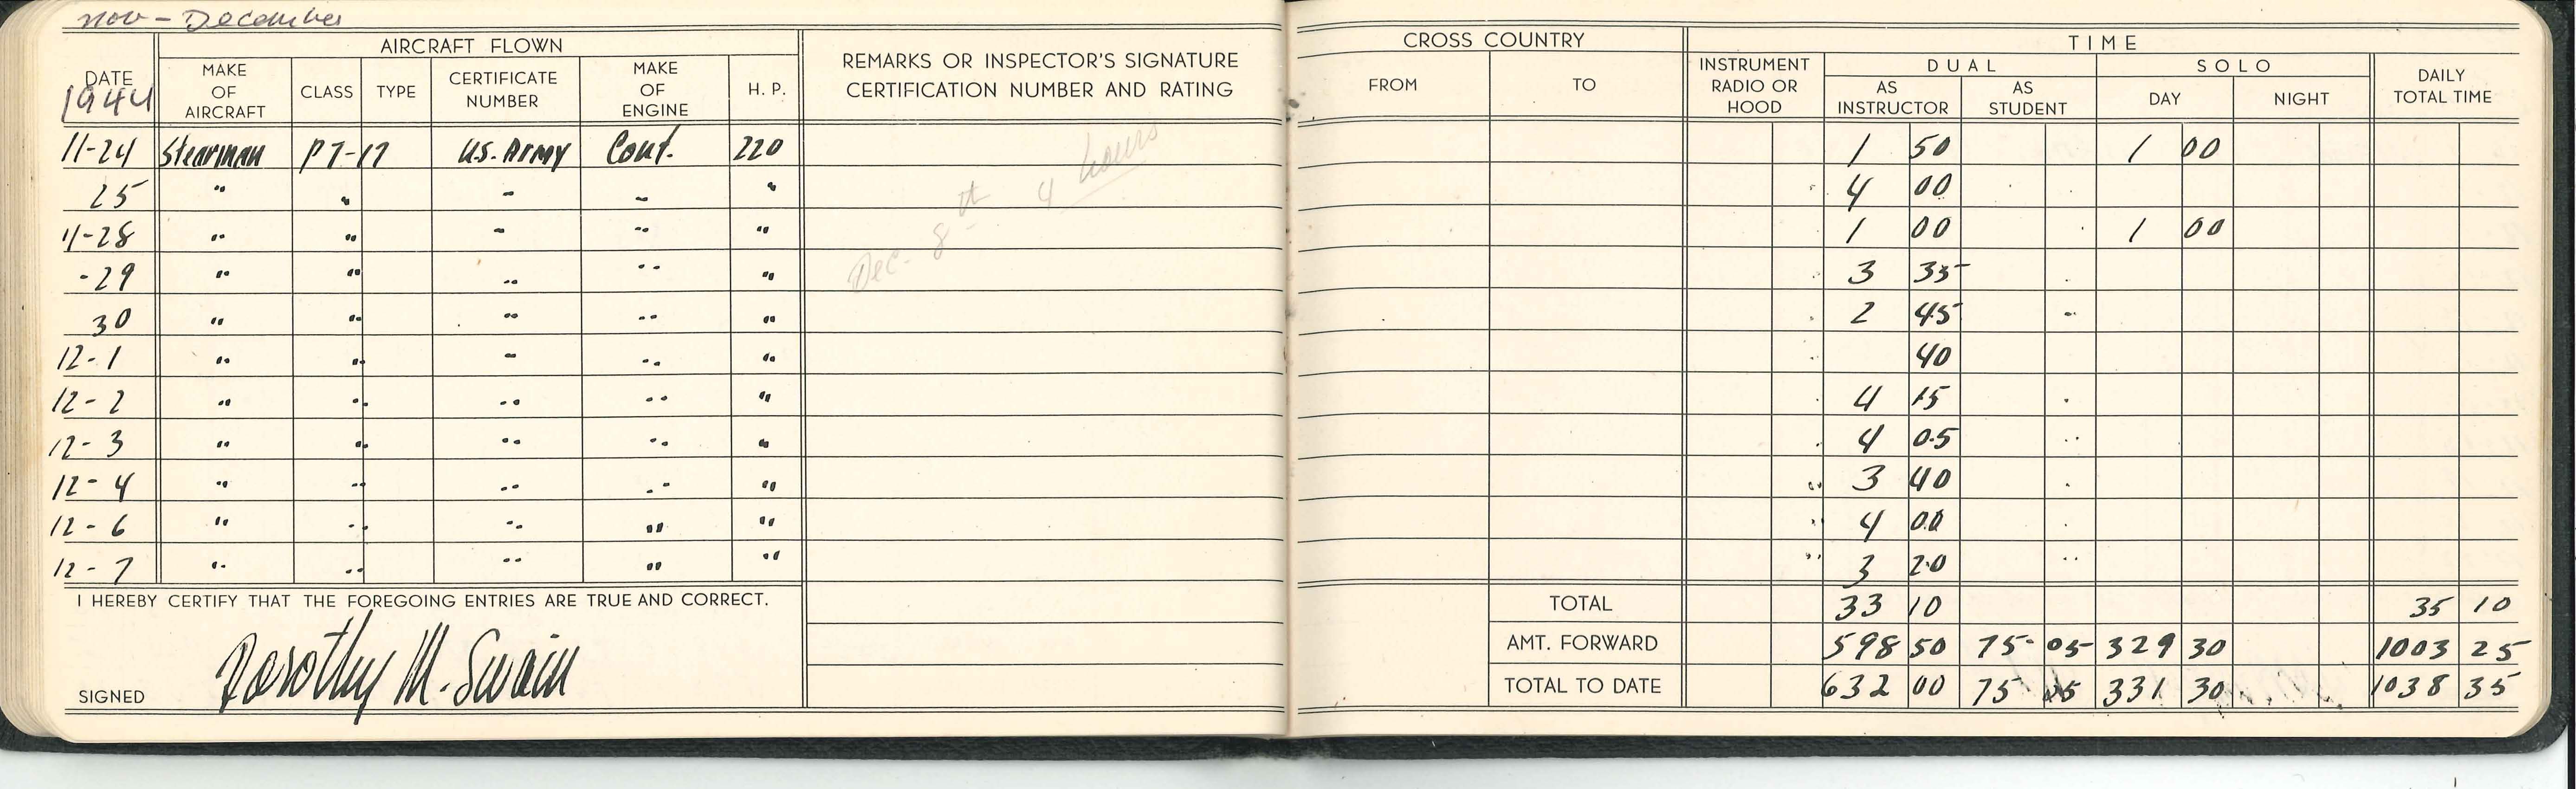 Nov - December
AIRCRAFT FLOWN
DATE 1944 MAKE OF AIRCRAFT CLASS TYPE CERTIFICATE NUMBER MAKE OF ENGINE H. P. REMARKS OR INSPECTOR'S SIGNATURE CERTIFICATION NUMBER AND RATING
CROSS COUNTRY TIME
FROM TO INSTRUMENT RADIO OR HOOD DUAL SOLO DAILY TOTAL TIME
AS INSTRUCTOR AS STUDENT DAY NIGHT
11-24 Stearman PT-17 U.S. Army Cont. 220 1 50 1 00
25 " " " " " 4 00
11-28 " " " " " 1 00 1 00
-29 " " " " " 3 35
30 " " " " " 2 45
12-1 " " " " " 40
12-2 " " " " " 4 15
12-3 " " " " " 4 05
12-4 " " " " " 3 40
12-6 " " " " " 4 00
12-7 " " " " " 3 20
Dec. 8th 4 hours
I HEREBY CERTIFY THAT THE FOREGOING ENTRIES ARE TRUE AND CORRECT.
SIGNED Dorothy M. Swain
TOTAL 33 10 35 10
AMT. FORWARD 598 50 75 05 329 30 1003 25
TOTAL TO DATE 632 00 75 05 331 30 1038 35